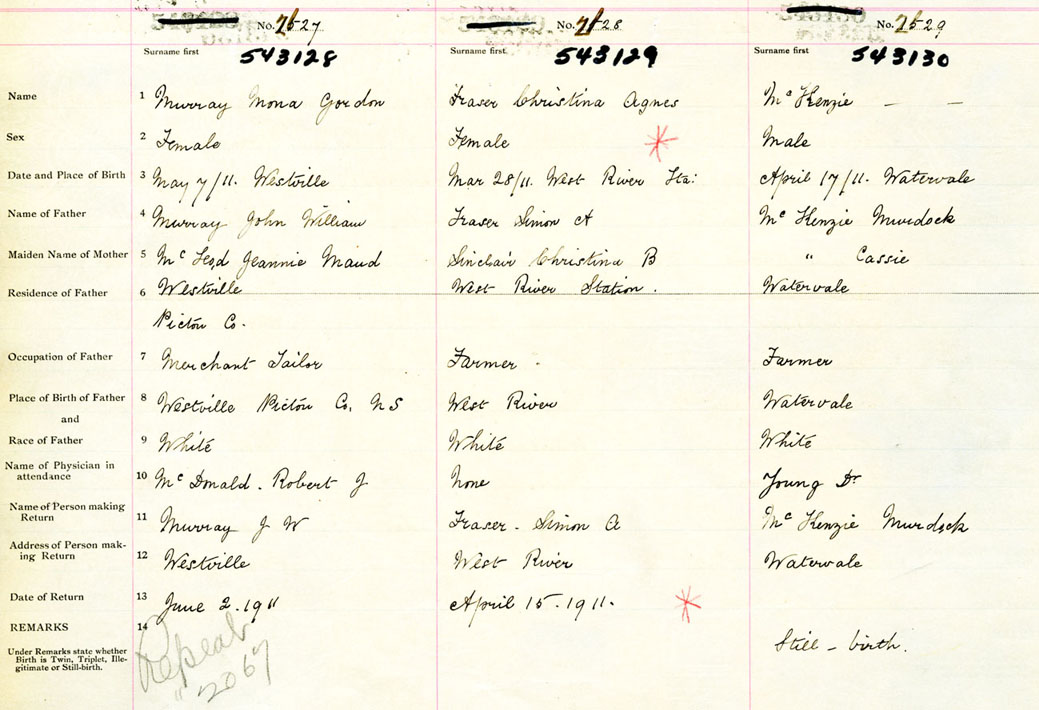 No. 2527 No. 2528 No. 2529
Surname first 543128 Surname first 543129 Surname first 543130
Name 1 Murray Mona Gordon Fraser Christina Agnes Mc Kenzie — —
Sex 2 Female Female Male
Date and Place of Birth 3 May 7/11. Westville Mar 28/11. West River Sta: April 17/11. Watervale
Name of Father 4 Murray John William Fraser Simon A Mc Kenzie Murdock
Maiden Name of Mother 5 Mc Leod Jeannie Maud Sinclair Christina B " Cassie
Residence of Father 6 Westville West River Station. Watervale
Pictou Co.
Occupation of Father 7 Merchant Tailor Farmer - Farmer
Place of Birth of Father 8 Westville Pictou Co, N S West River Watervale
and
Race of Father 9 White White White
Name of Physician in
attendance 10 Mc Donald. Robert J None Young Dr
Name of Person making
Return 11 Murray J W Fraser - Simon A Mc Kenzie Murdock
Address of Person mak-
ing Return 12 Westville West River Watervale
Date of Return 13 June 2. 1911 April 15 - 1911.
REMARKS 14 Still - birth.
Under Remarks state whether
Birth is Twin, Triplet, Ille-
gitimate or Still-birth.
Repeat
" 2067